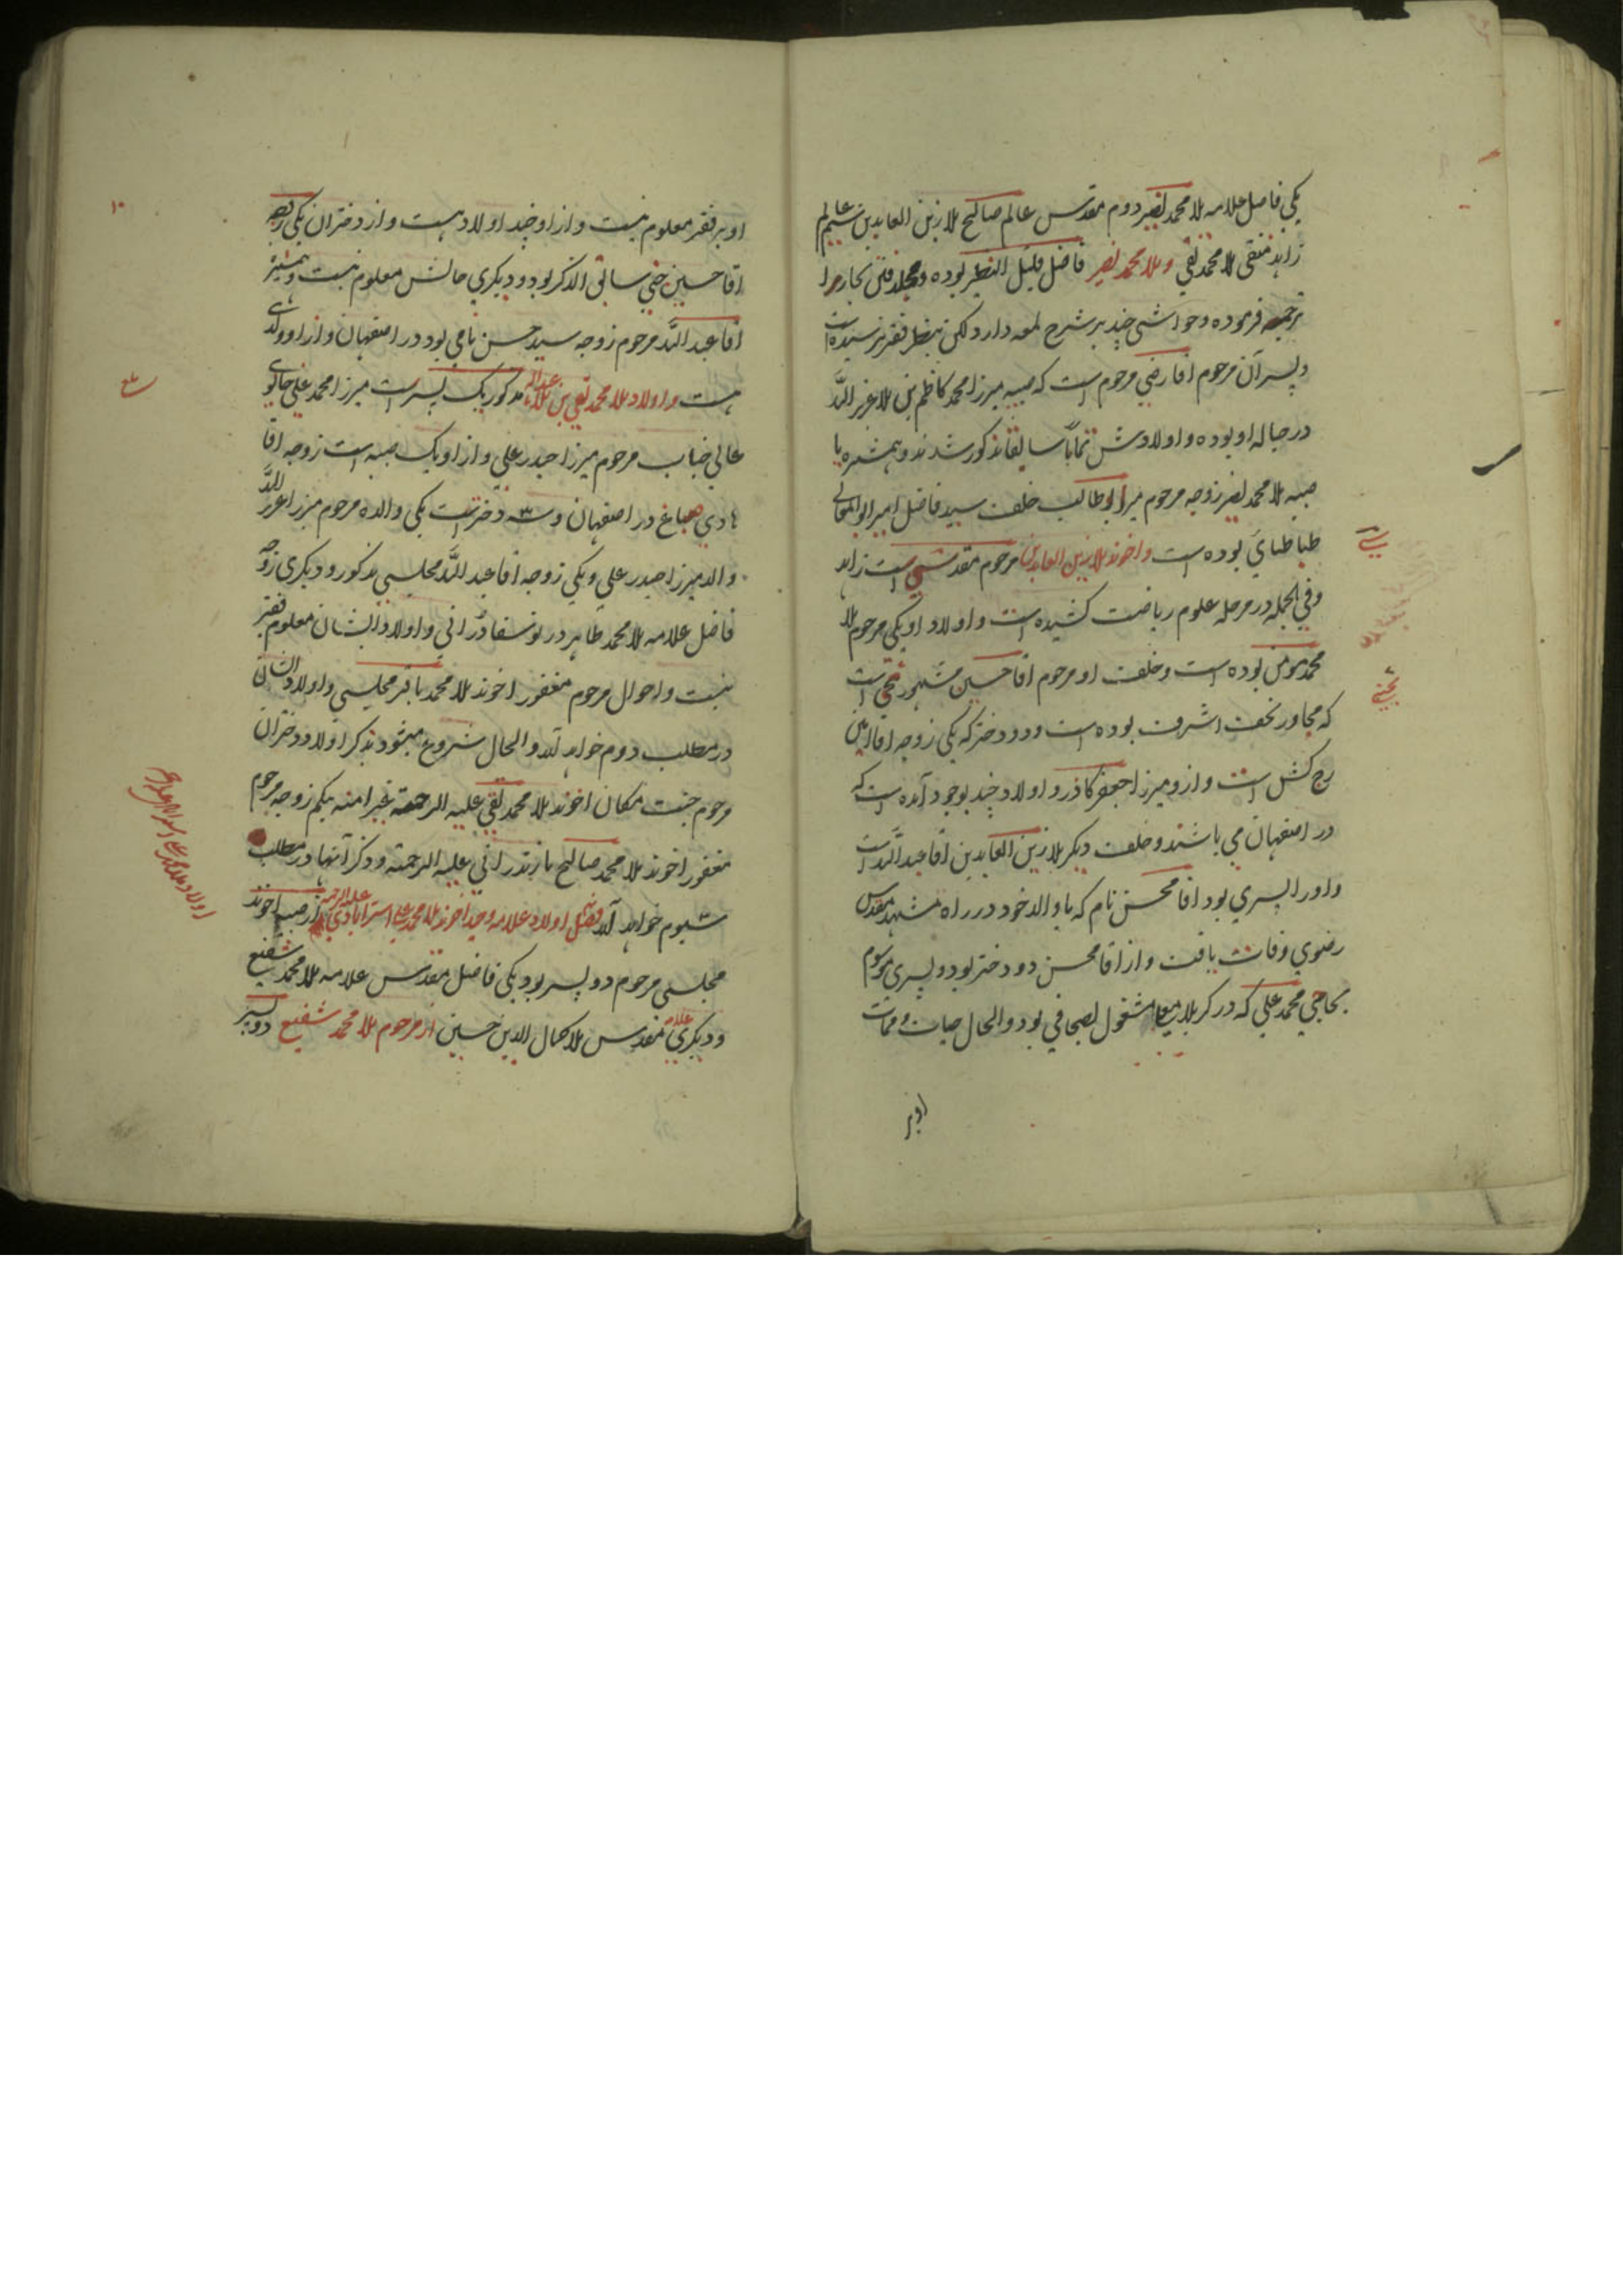 یکی فاضل علامه ملا محمد نصیر دوم مقدس عالم صالح ملا زین العابدین سیم عالم
زاهد متقی ملا محمد تقی و ملا محمد نصیر فاضل قلیل النظیر بوده و مجلد فتن بحار را
ترجمه فرموده و حواشی چند بر شرح لمعه دارد لکن بنظر فقیر نرسیده است
و پسر آن مرحوم اقا رضی مرحوم است که صبیه میرزا محمد کاظم بن ملا عزیز الله
در حباله او بوده و اولادش تماماً سابقا مذکور شدند و همشیره با
صبیه ملا محمد نصیر زوجه مرحوم میر ابو طالب خلف سید فاضل امیر ابو المعالی
طباطبایی بوده است و اخوند ملا زین العابدین مرحوم مقدس است زاهد
و فی الجمله در مرحله علوم ریاضت کشیده است و اولاد او یکی مرحوم ملا
محمد مومن بوده است و خلف او مرحوم اقا حسین مشهور است
که مجاور نجف اشرف بوده است و دو دختر که یکی زوجه اقا امین
کش است و از و میرزا جعفر کاذر و اولاد چند بوجود آمده است که
در اصفهان می باشند و خلف دیگر ملا زین العابدین اقا عبد الله است
و او را پسری بود اقا محسن نام که با والد خود در راه مشهد مقدس
رضوی وفات یافت و از اقا محسن دو دختر بود و پسری موسوم
بحاجی محمد علی که در کربلا معلا مشغول بصحافی بود و الحال حیات و ممات
او بر
۱۰
او بر فقیر معلوم نیست و از او چند اولاد هست و از دختران یکی زوجه
اقا حسین سابق الذکر بود و دیگری حالش معلوم نیست و همشیره
اقا عبد الله مرحوم زوجه سید حسن نامی بود در اصفهان و از او ولدی
هست و اولاد ملا محمد تقی بن ملا عبد الله مذکور یک پسر است میرزا محمد علی
عالی جناب مرحوم میرزا حیدر علی و از او یک صبیه است زوجه اقا
هادی صباغ در اصفهان و سه دختر است یکی والده مرحوم میرزا عزیز الله
والد میرزا حیدر علی و یکی زوجه اقا عبد الله مجلسی مذکور و دیگری زوجه
فاضل علامه ملا محمد طاهر و اولاد ایشان معلوم فقیر
نیست و احوال مرحوم مغفور اخوند ملا محمد باقر مجلسی و اولاد ایشان
در مطلب دوم خواهد آمد و الحال شروع میشود بذکر اولاد دختران
مرحوم جنت مکان اخوند ملا محمد تقی علیه الرحمة غیر امنه بیکم زوجه مرحوم
مغفور اخوند ملا محمد صالح مازندرانی علیه الرحمة و ذکر آنها در مطلب
سیوم خواهد آمد فصل اولاد علامه وحید اخوند ملا محمد علی استرابادی علیه الرحمه از صبیه اخوند
مجلسی مرحوم دو پسر بود یکی فاضل مقدس علامه ملا محمد شفیع
و دیگری علامه مقدس ملا کمال الدین حسین از مرحوم ملا محمد شفیع دو پسر